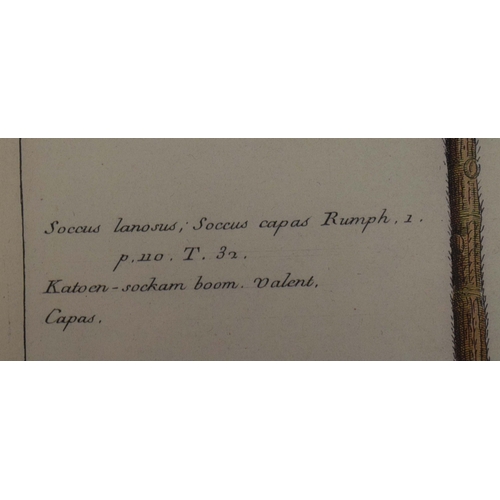 Soccus lanosus; Soccus capas Rumph. 1.
p. 110. T. 32.
Katoen-sockam boom. Valent.
Capas.